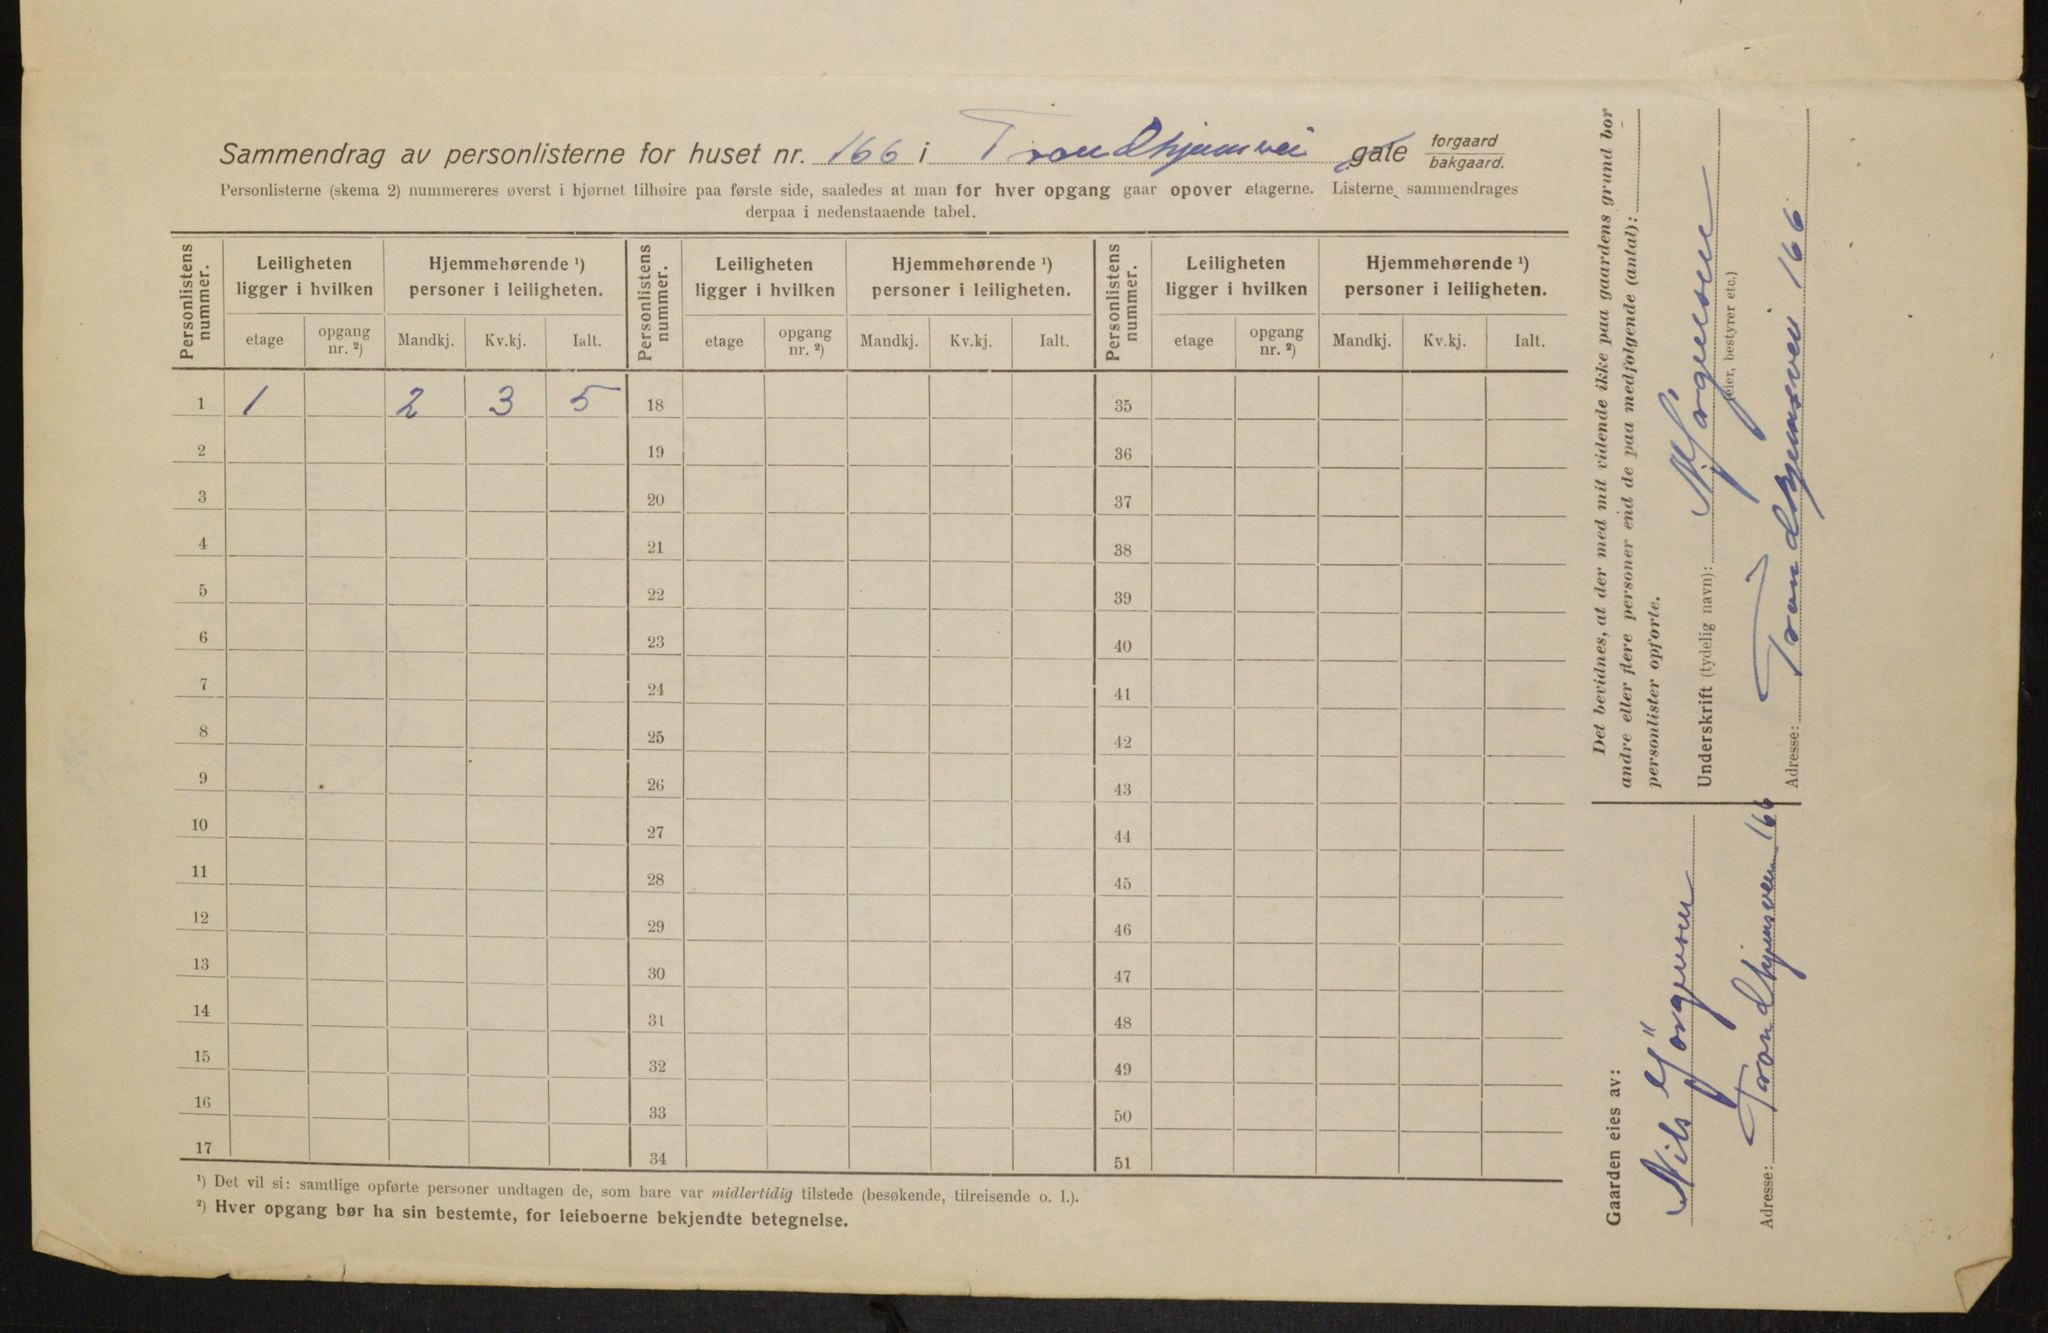 Sammendrag av personlisterne for huset nr. 166 i Trondhjemsvei gate forgaard bakgaard.
Personlisterne (skema 2) nummereres øverst i hjørnet tilhøire paa første side, saaledes at man for hver opgang gaar opover etagerne. Listerne sammendrages
derpaa i nedenstaaende tabel.
Personlistens nummer. Leiligheten ligger i hvilken Hjemmehørende ¹) personer i leiligheten. Personlistens nummer. Leiligheten ligger i hvilken Hjemmehørende ¹) personer i leiligheten. Personlistens nummer. Leiligheten ligger i hvilken Hjemmehørende ¹) personer i leiligheten.
etage opgang nr. ²) Mandkj. Kv.kj. Ialt. etage opgang nr. ²) Mandkj. Kv.kj. Ialt. etage opgang nr. ²) Mandkj. Kv.kj. Ialt.
1 1 2 3 5 18 35
2 19 36
3 20 37
4 21 38
5 22 39
6 23 40
7 24 41
8 25 42
9 26 43
10 27 44
11 28 45
12 29 46
13 30 47
14 31 48
15 32 49
16 33 50
17 34 51
¹) Det vil si: samtlige opførte personer undtagen de, som bare var midlertidig tilstede (besøkende, tilreisende o. l.).
²) Hver opgang bør ha sin bestemte, for leieboerne bekjendte betegnelse.
Det bevidnes, at der med mit vidende ikke paa gaardens grund bor
andre eller flere personer end de paa medfølgende (antal):
personlister opførte.
Underskrift (tydelig navn): N. Jörgensen
(eier, bestyrer etc.)
Adresse: Trondhjemsvei 166
Gaarden eies av:
Nils Jörgensen
Adresse: Trondhjemsveien 166